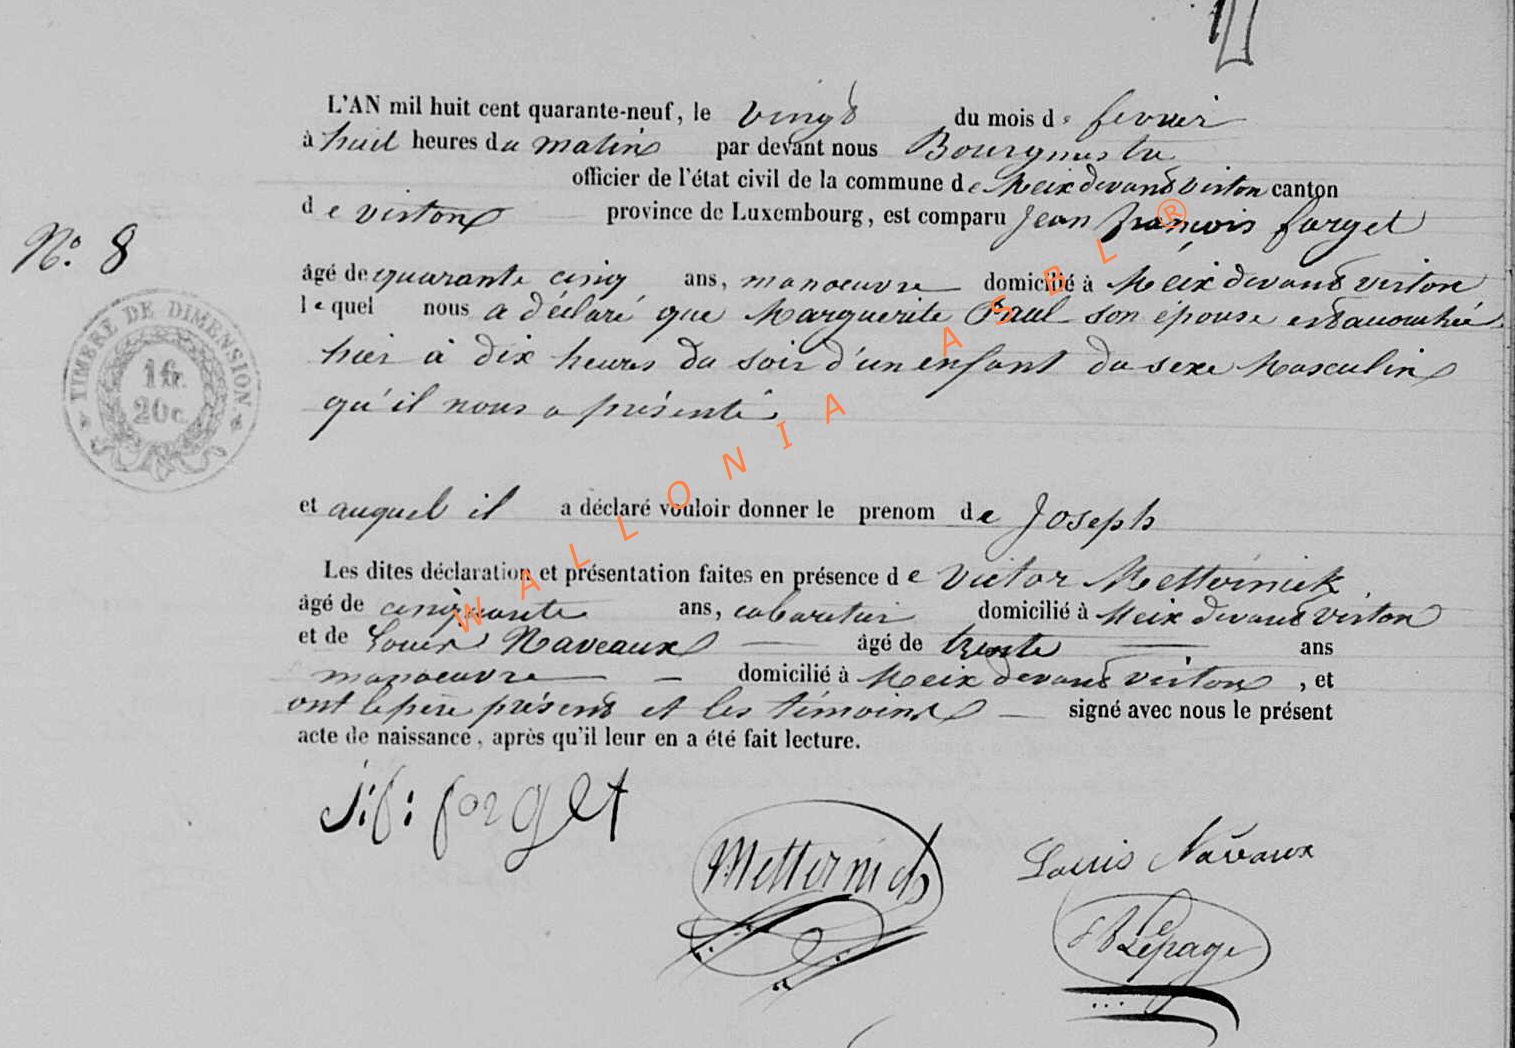 L'AN mil huit cent quarante-neuf, le vingt du mois de fevrier
à huit heures du matin par devant nous Bourgmestre
officier de l'état civil de la commune de Meix devant virton canton
de virton province de Luxembourg, est comparu Jean françois forget
N.º 8
âgé de quarante cinq ans, manoeuvre domicilié à Meix devant virton
lequel nous a déclaré que Marguerite Paul son épouse est accouchée
hier à dix heures du soir d'un enfant du sexe Masculin
qu'il nous a présenté
TIMBRE DE DIMENSION
1 fr.
20 c.
et auquel il a déclaré vouloir donner le prenom de Joseph
Les dites déclaration et présentation faites en présence de Victor Metternick
âgé de cinquante ans, cabaretier domicilié à Meix devant virton
et de Louis Naveaux âgé de trente ans
manoeuvre domicilié à Meix devant virton, et
ont le père présent et les témoins signé avec nous le présent
acte de naissance, après qu'il leur en a été fait lecture.
j: f: forget
Metternich
Louis Navaux
Lepage
WALLONIA ASBL ®